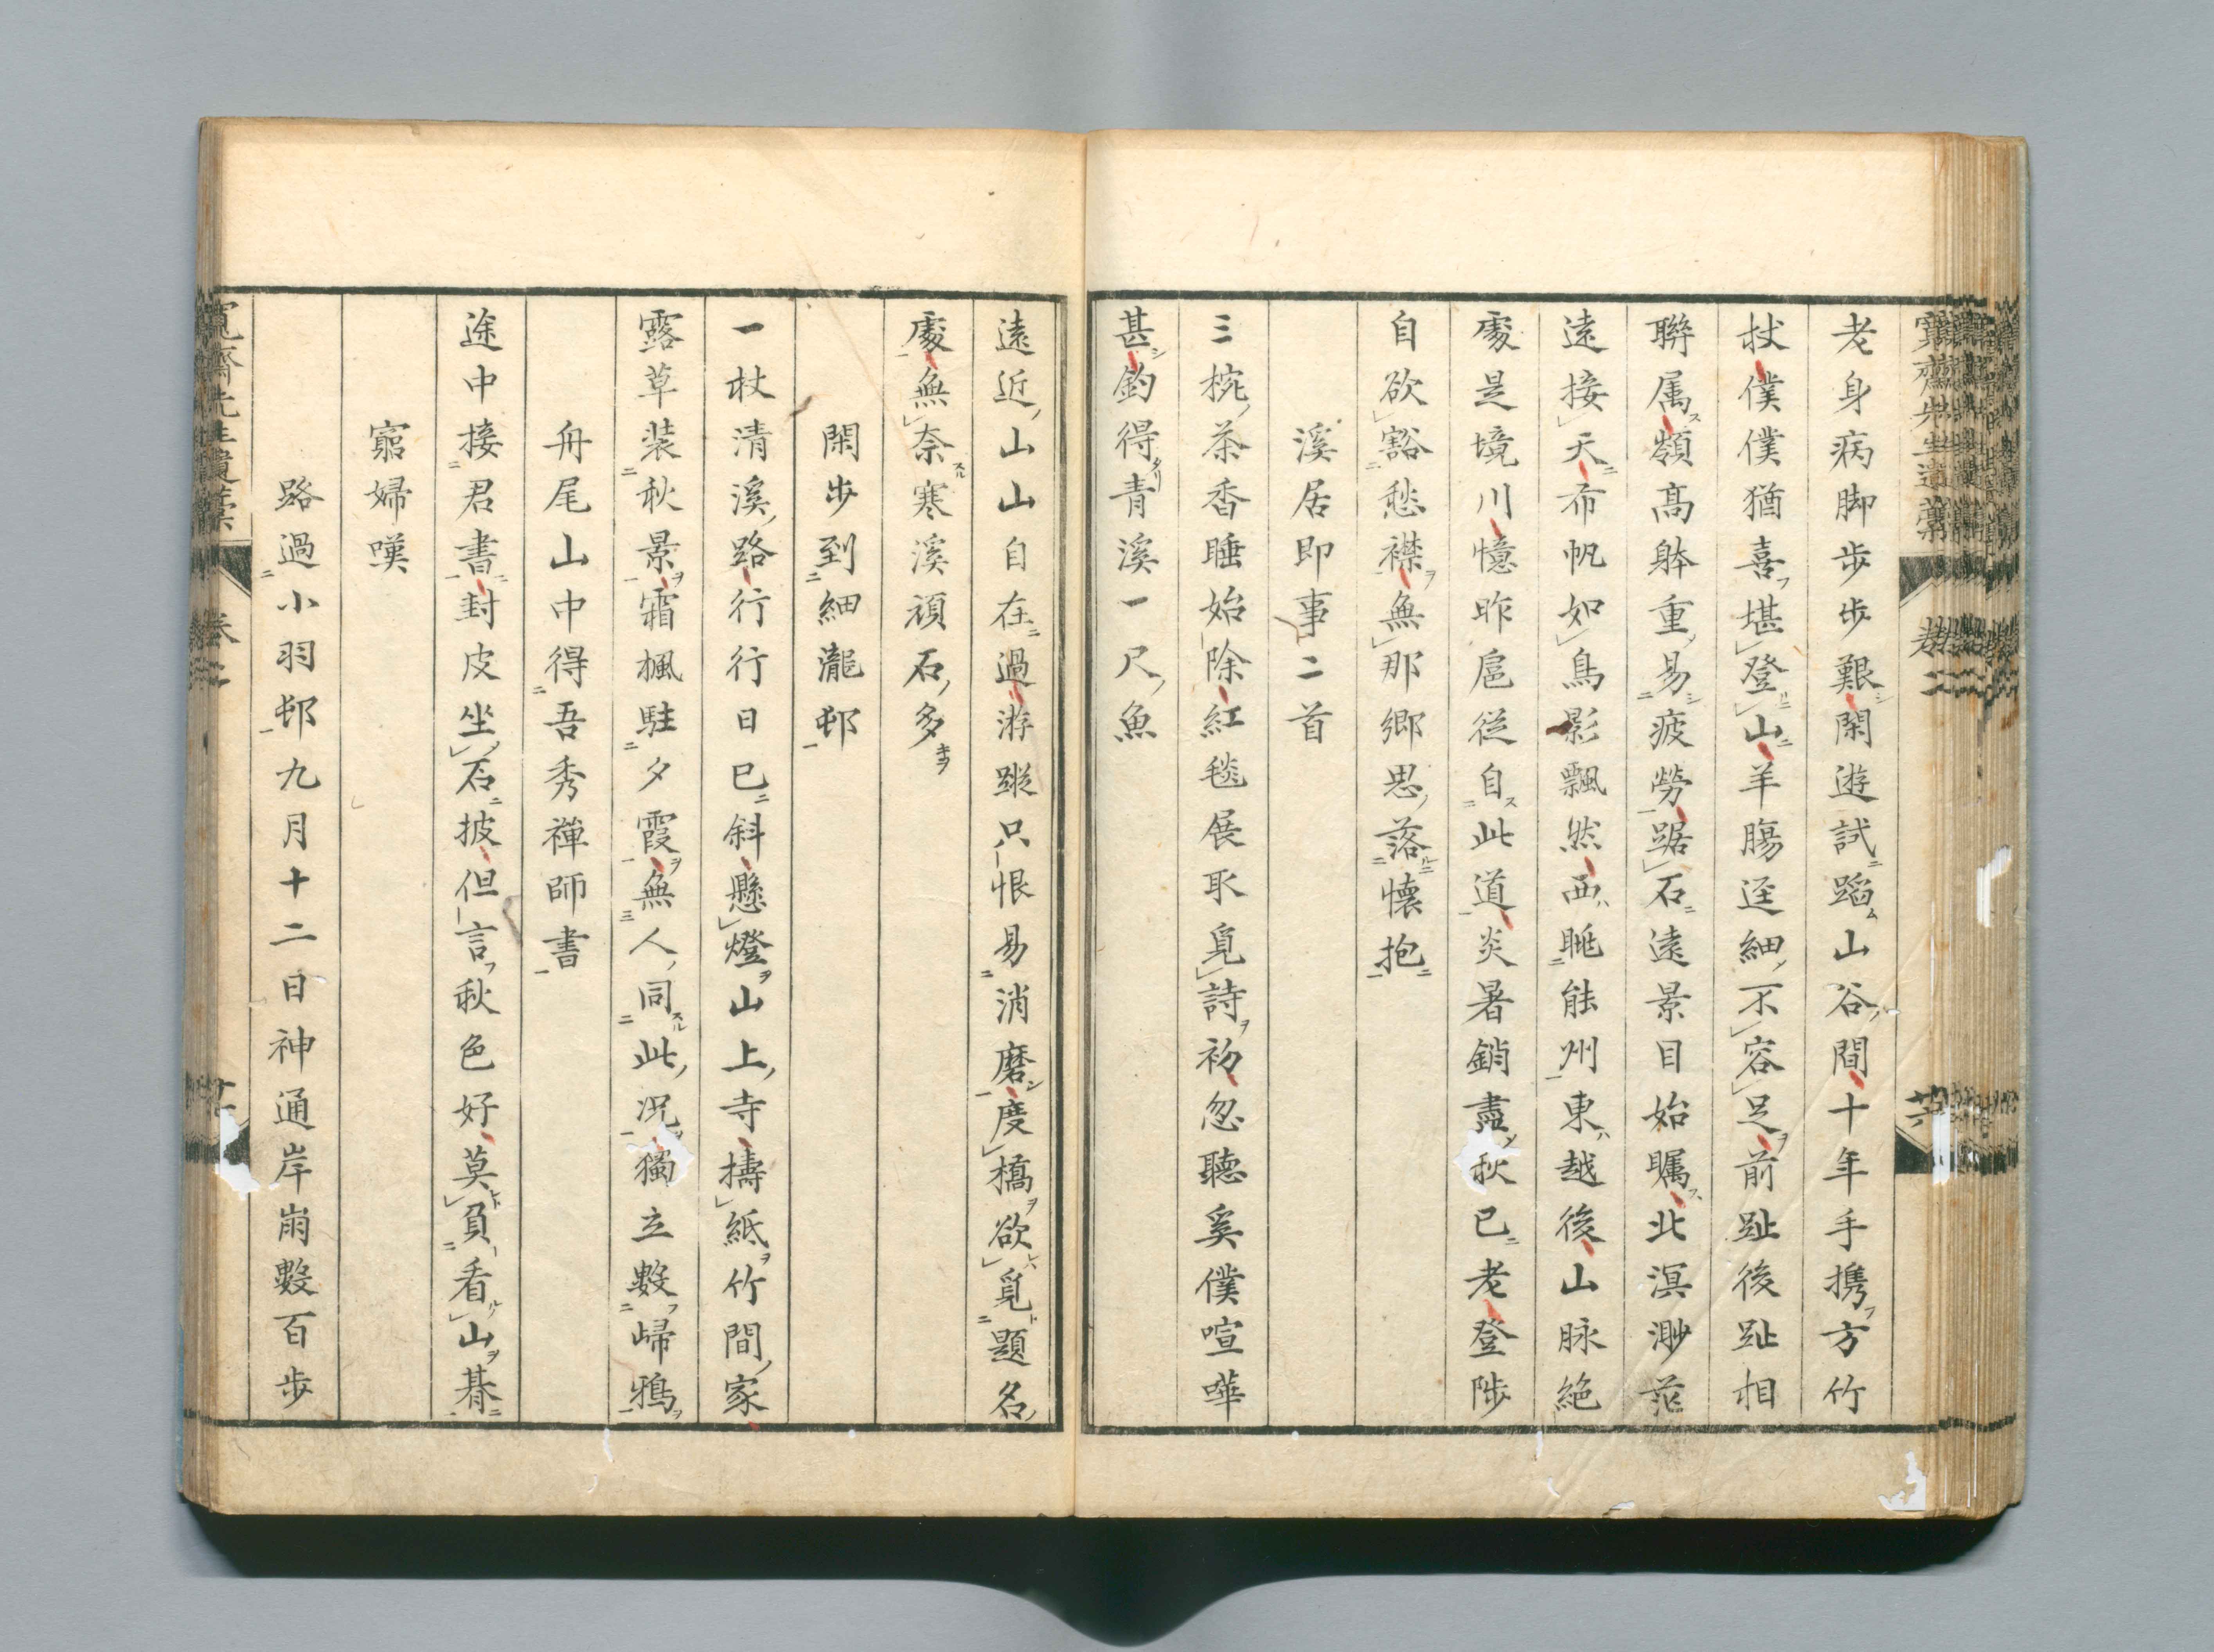 寬齋先生遺稾 卷二 廿六
老身病脚步步艱閑遊試蹈山谷間十年手携方竹
杖僕僕猶喜堪登山羊腸逕細不容足前趾後趾相
聯属嶺髙躰重易疲勞踞石遠景目始矚北溟渺茫
遠接天布帆如鳥影飄然西眺能州東越後山脉絶
處是境川憶昨扈從自此道炎暑銷盡秋已老登陟
自欲豁愁襟無那郷思落懷抱
溪居即事二首
三椀茶香睡始除紅毯展取覓詩初忽聽奚僕喧嘩
甚釣得青溪一尺魚
遠近山山自在過游蹤只恨易消磨度橋欲覓題名
處無奈寒溪頑石多
閑步到細瀧邨
一杖清溪路行行日已斜懸燈山上寺擣紙竹間家
露草装秋景霜楓駐夕霞無人同此况獨立數歸鴉
舟尾山中得吾秀禅師書
途中接君書封皮坐石披但言秋色好莫負看山碁
窮婦嘆
路過小羽邨九月十二日神通岸崩數百步
寬齋先生遺稾 卷二